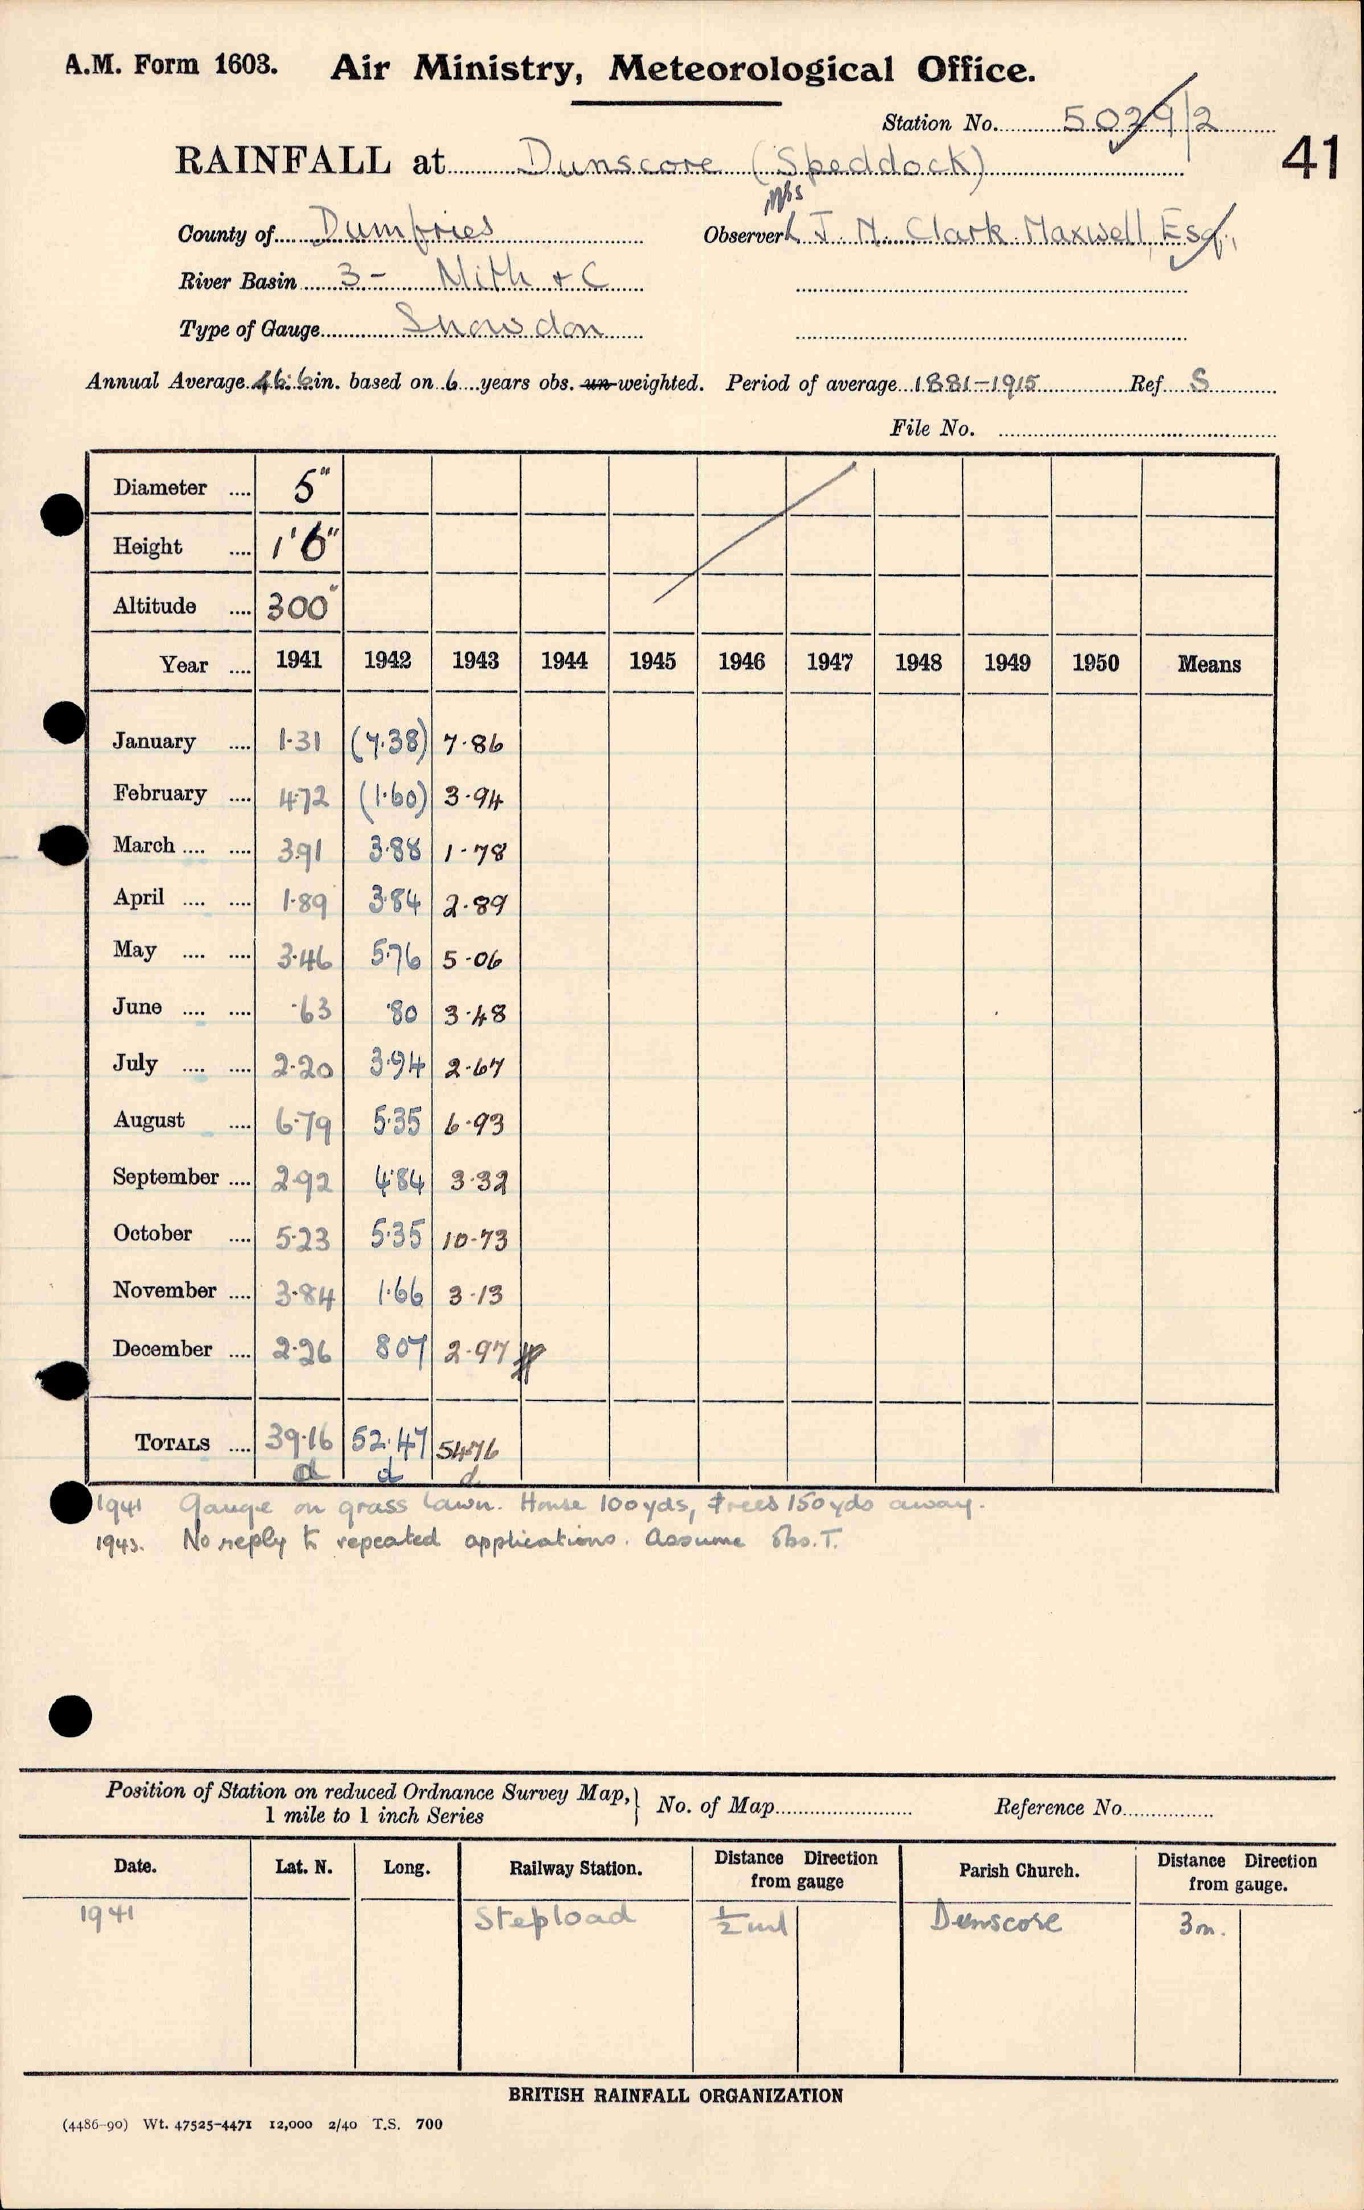 A.M. Form 1603. Air Ministry, Meteorological Office.
Station No. 5029/2
41
RAINFALL at Dunscore (Speddock)
Mrs
County of Dumfries Observer J. M. Clark Maxwell, Esq.,
River Basin 3- Nith + C
Type of Gauge Snowdon
Annual Average 46.6 in. based on 6 years obs. un-weighted. Period of average 1881-1915 Ref. S
File No.
Diameter .... 5"
Height .... 1'6"
Altitude .... 300"
Year .... 1941 1942 1943 1944 1945 1946 1947 1948 1949 1950 Means
January .... 1.31 (7.38) 7.86
February .... 4.72 (1.60) 3.94
March .... .... 3.91 3.88 1.78
April .... .... 1.89 3.84 2.89
May .... .... 3.46 5.76 5.06
June .... .... .63 .80 3.48
July .... .... 2.20 3.94 2.67
August .... 6.79 5.35 6.93
September .... 2.92 4.84 3.32
October .... 5.23 5.35 10.73
November .... 3.84 1.66 3.13
December .... 2.26 8.07 2.97
TOTALS .... 39.16 52.47 54.76
d d d
1941 Gauge on grass lawn. House 100yds, trees 150yds away.
1943. No reply to repeated applications. Assume obs. T.
Position of Station on reduced Ordnance Survey Map, } No. of Map Reference No.
1 mile to 1 inch Series
Date. Lat. N. Long. Railway Station. Distance Direction from gauge Parish Church. Distance Direction from gauge.
1941 Stepload ½ ml Dunscore 3m.
BRITISH RAINFALL ORGANIZATION
(4486-90) Wt. 47525-4471 12,000 2/40 T.S. 700